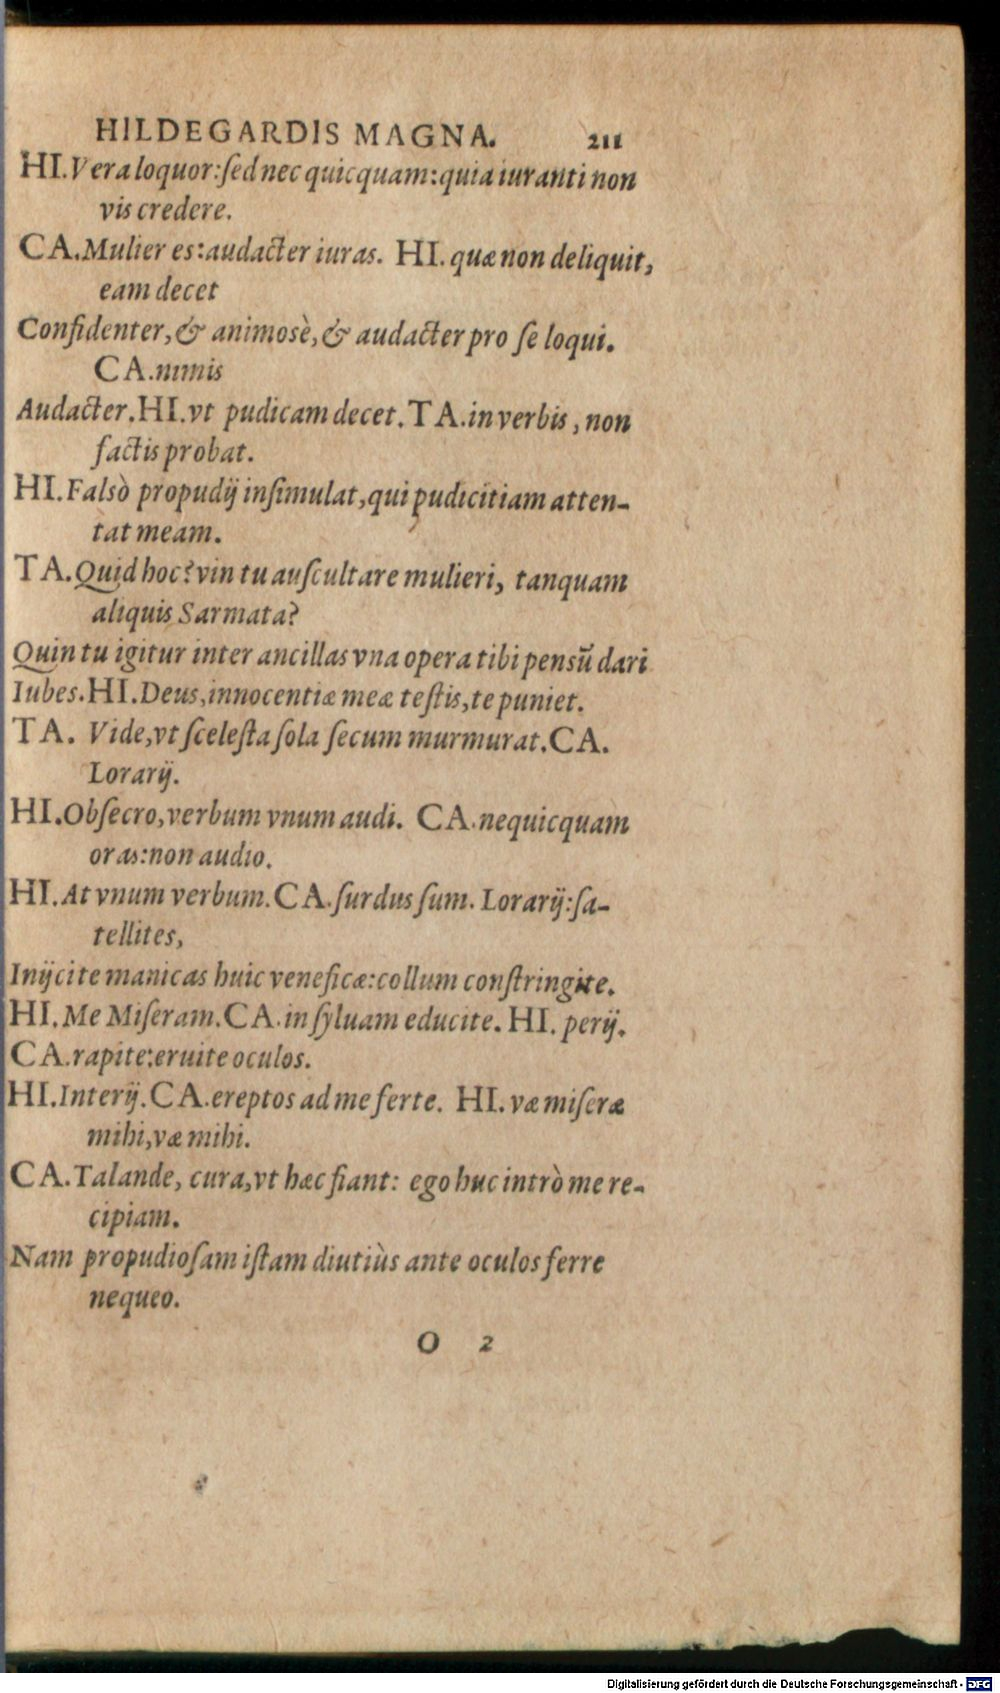 HILDEGARDIS MAGNA. 211
HI. Vera loquor: ſed nec quicquam: quia iuranti non
vis credere.
CA. Mulier es: audacter iuras. HI. quæ non deliquit,
eam decet
Confidenter, & animosè, & audacter pro ſe loqui.
CA. nimis
Audacter. HI. vt pudicam decet. TA. in verbis, non
factis probat.
HI. Falsò propudij inſimulat, qui pudicitiam atten-
tat meam.
TA. Quid hoc? vin tu auſcultare mulieri, tanquam
aliquis Sarmata?
Quin tu igitur inter ancillas vna opera tibi pensū dari
Iubes. HI. Deus, innocentiæ meæ teſtis, te puniet.
TA. Vide, vt ſceleſta ſola ſecum murmurat. CA.
Lorarij.
HI. Obſecro, verbum vnum audi. CA. nequicquam
oras: non audio.
HI. At vnum verbum. CA. ſurdus ſum. Lorarij: ſa-
tellites,
Inijcite manicas huic veneficæ: collum conſtringite.
HI. Me Miſeram. CA. in ſyluam educite. HI. perij.
CA. rapite: eruite oculos.
HI. Interij. CA. ereptos ad me ferte. HI. væ miſeræ
mihi, væ mihi.
CA. Talande, cura, vt hæc fiant: ego huc intrò me re-
cipiam.
Nam propudioſam iſtam diutiùs ante oculos ferre
nequeo.
O 2
Digitalisierung gefördert durch die Deutsche Forschungsgemeinschaft - DFG